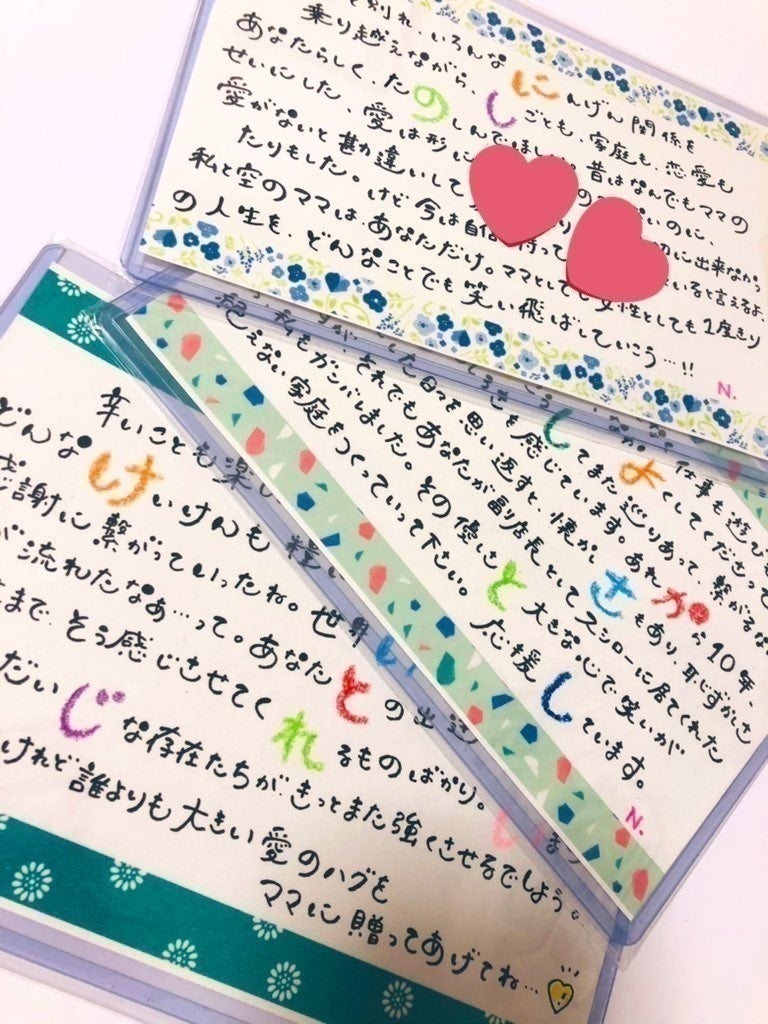 と別れ、いろんな
乗り越えながら、にんげん関係を
あなたらしく、たのしごとも、家庭も、恋愛も
せいにした、愛は形にしんでほし 昔はなんでもママの
愛がないと勘違いして のに、
たりもした。けど今は自信 持って 切に出来なかっ
私と空のママはあなただけ。ママとしても女性としても1度きり いると言えるよ、
の人生を、どんなことでも笑い飛ばしていこう…!!
N.
仕事も遊び
してまた巡りあって、繋がる
しさを感じています。あれから10年、
した日々を思い返すと、懐かしさもあり、恥ずかしさ
が、それでもあなたが副店長としてスシローに居てくれた
、私もガンバしました。その優しさと大きな心で笑いが
絶えない家庭をつくっていって下さい。応援しています。
N.
辛いことも楽し
どんなけいけんも
感謝に繋がっていったね。世界
が流れたなぁ…って。あなたとの出逢
まで、そう感じさせてくれるものばかり。
だいじな存在たちが、きっとまた強くさせるでしょう。
けれど誰よりも大きい愛のハグを
ママに贈ってあげてね…